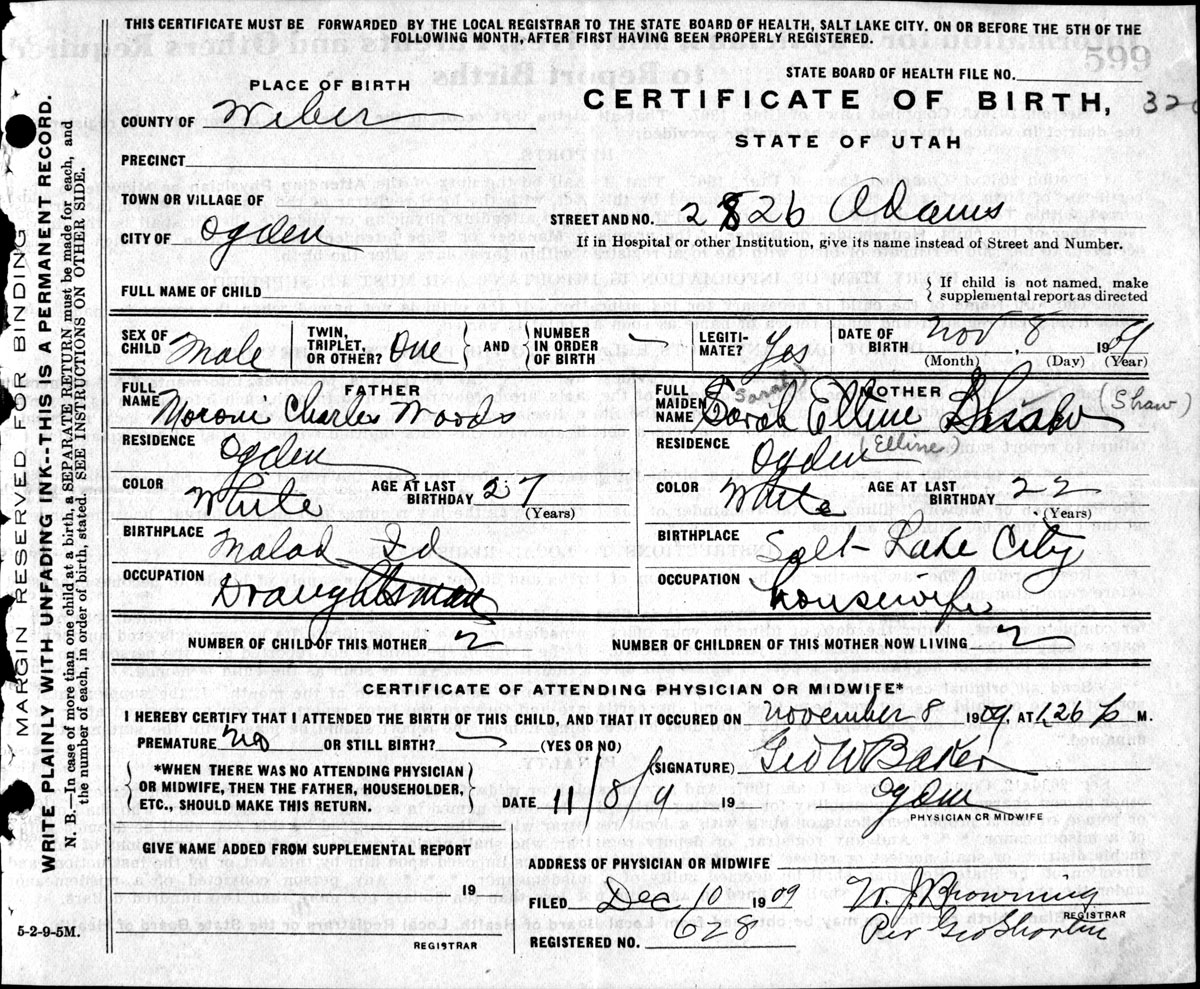 THIS CERTIFICATE MUST BE FORWARDED BY THE LOCAL REGISTRAR TO THE STATE BOARD OF HEALTH, SALT LAKE CITY. ON OR BEFORE THE 5TH OF THE
FOLLOWING MONTH, AFTER FIRST HAVING BEEN PROPERLY REGISTERED.
STATE BOARD OF HEALTH FILE NO.
PLACE OF BIRTH
CERTIFICATE OF BIRTH, 32
STATE OF UTAH
COUNTY OF Weber
PRECINCT
TOWN OR VILLAGE OF
CITY OF Ogden
STREET AND NO. 2826 Adams
If in Hospital or other Institution, give its name instead of Street and Number.
FULL NAME OF CHILD
If child is not named, make
supplemental report as directed
SEX OF CHILD Male
TWIN, TRIPLET, OR OTHER? One AND NUMBER IN ORDER OF BIRTH
LEGITI-MATE? Yes
DATE OF BIRTH Nov, 8 1909
(Month) (Day) (Year)
FATHER
FULL NAME Moroni Charles Woods
RESIDENCE Ogden
COLOR White AGE AT LAST BIRTHDAY 27
(Years)
BIRTHPLACE Malad Id
OCCUPATION Draughtsman
MOTHER
(Sarah)
FULL MAIDEN NAME Sarah Elline Shaw (Shaw)
RESIDENCE Ogden (Elline)
COLOR White AGE AT LAST BIRTHDAY 22
(Years)
BIRTHPLACE Salt Lake City
OCCUPATION Housewife
NUMBER OF CHILD OF THIS MOTHER 2
NUMBER OF CHILDREN OF THIS MOTHER NOW LIVING 2
CERTIFICATE OF ATTENDING PHYSICIAN OR MIDWIFE*
I HEREBY CERTIFY THAT I ATTENDED THE BIRTH OF THIS CHILD, AND THAT IT OCCURED ON November 8 1909, AT 126 P M.
PREMATURE? No OR STILL BIRTH? (YES OR NO)
*WHEN THERE WAS NO ATTENDING PHYSICIAN
OR MIDWIFE, THEN THE FATHER, HOUSEHOLDER,
ETC., SHOULD MAKE THIS RETURN.
(SIGNATURE) Geo W Baker
DATE 11/8/9 19 Ogden
PHYSICIAN OR MIDWIFE
GIVE NAME ADDED FROM SUPPLEMENTAL REPORT
19
REGISTRAR
ADDRESS OF PHYSICIAN OR MIDWIFE
FILED Dec 10 1909 W. J. Browning
REGISTRAR
REGISTERED NO. 628 Per Geo
5-2-9-5M.
MARGIN RESERVED FOR BINDING
WRITE PLAINLY WITH UNFADING INK---THIS IS A PERMANENT RECORD.
N. B.—In case of more than one child at a birth, a SEPARATE RETURN must be made for each, and
the number of each, in order of birth, stated. SEE INSTRUCTIONS ON OTHER SIDE.